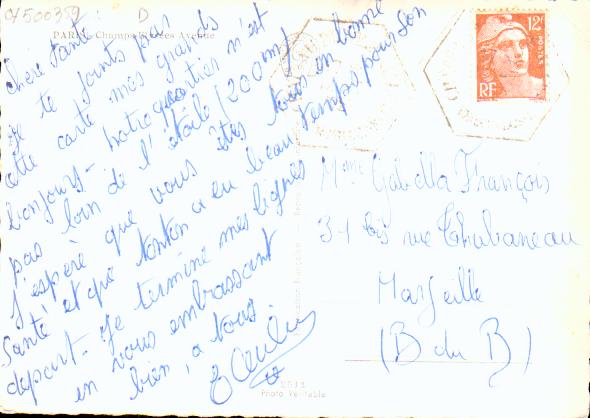 0500352 D
PARIS. Champs Elysées Avenue
chère tante
je te joints par
cette carte mes grands
bonjours - notre quartier n'est
pas loin de l'étoile (200m)
J'espère que vous êtes tous en bonne
Santé et que tonton a eu beau temps pour son
depart - Je termine mes lignes
en vous embrassant
bien, a tous.
12F
POSTES
RF
Mme Gabella François
31 bis rue Thubaneau
Marseille
(B du R)
2511
Photo Véritable